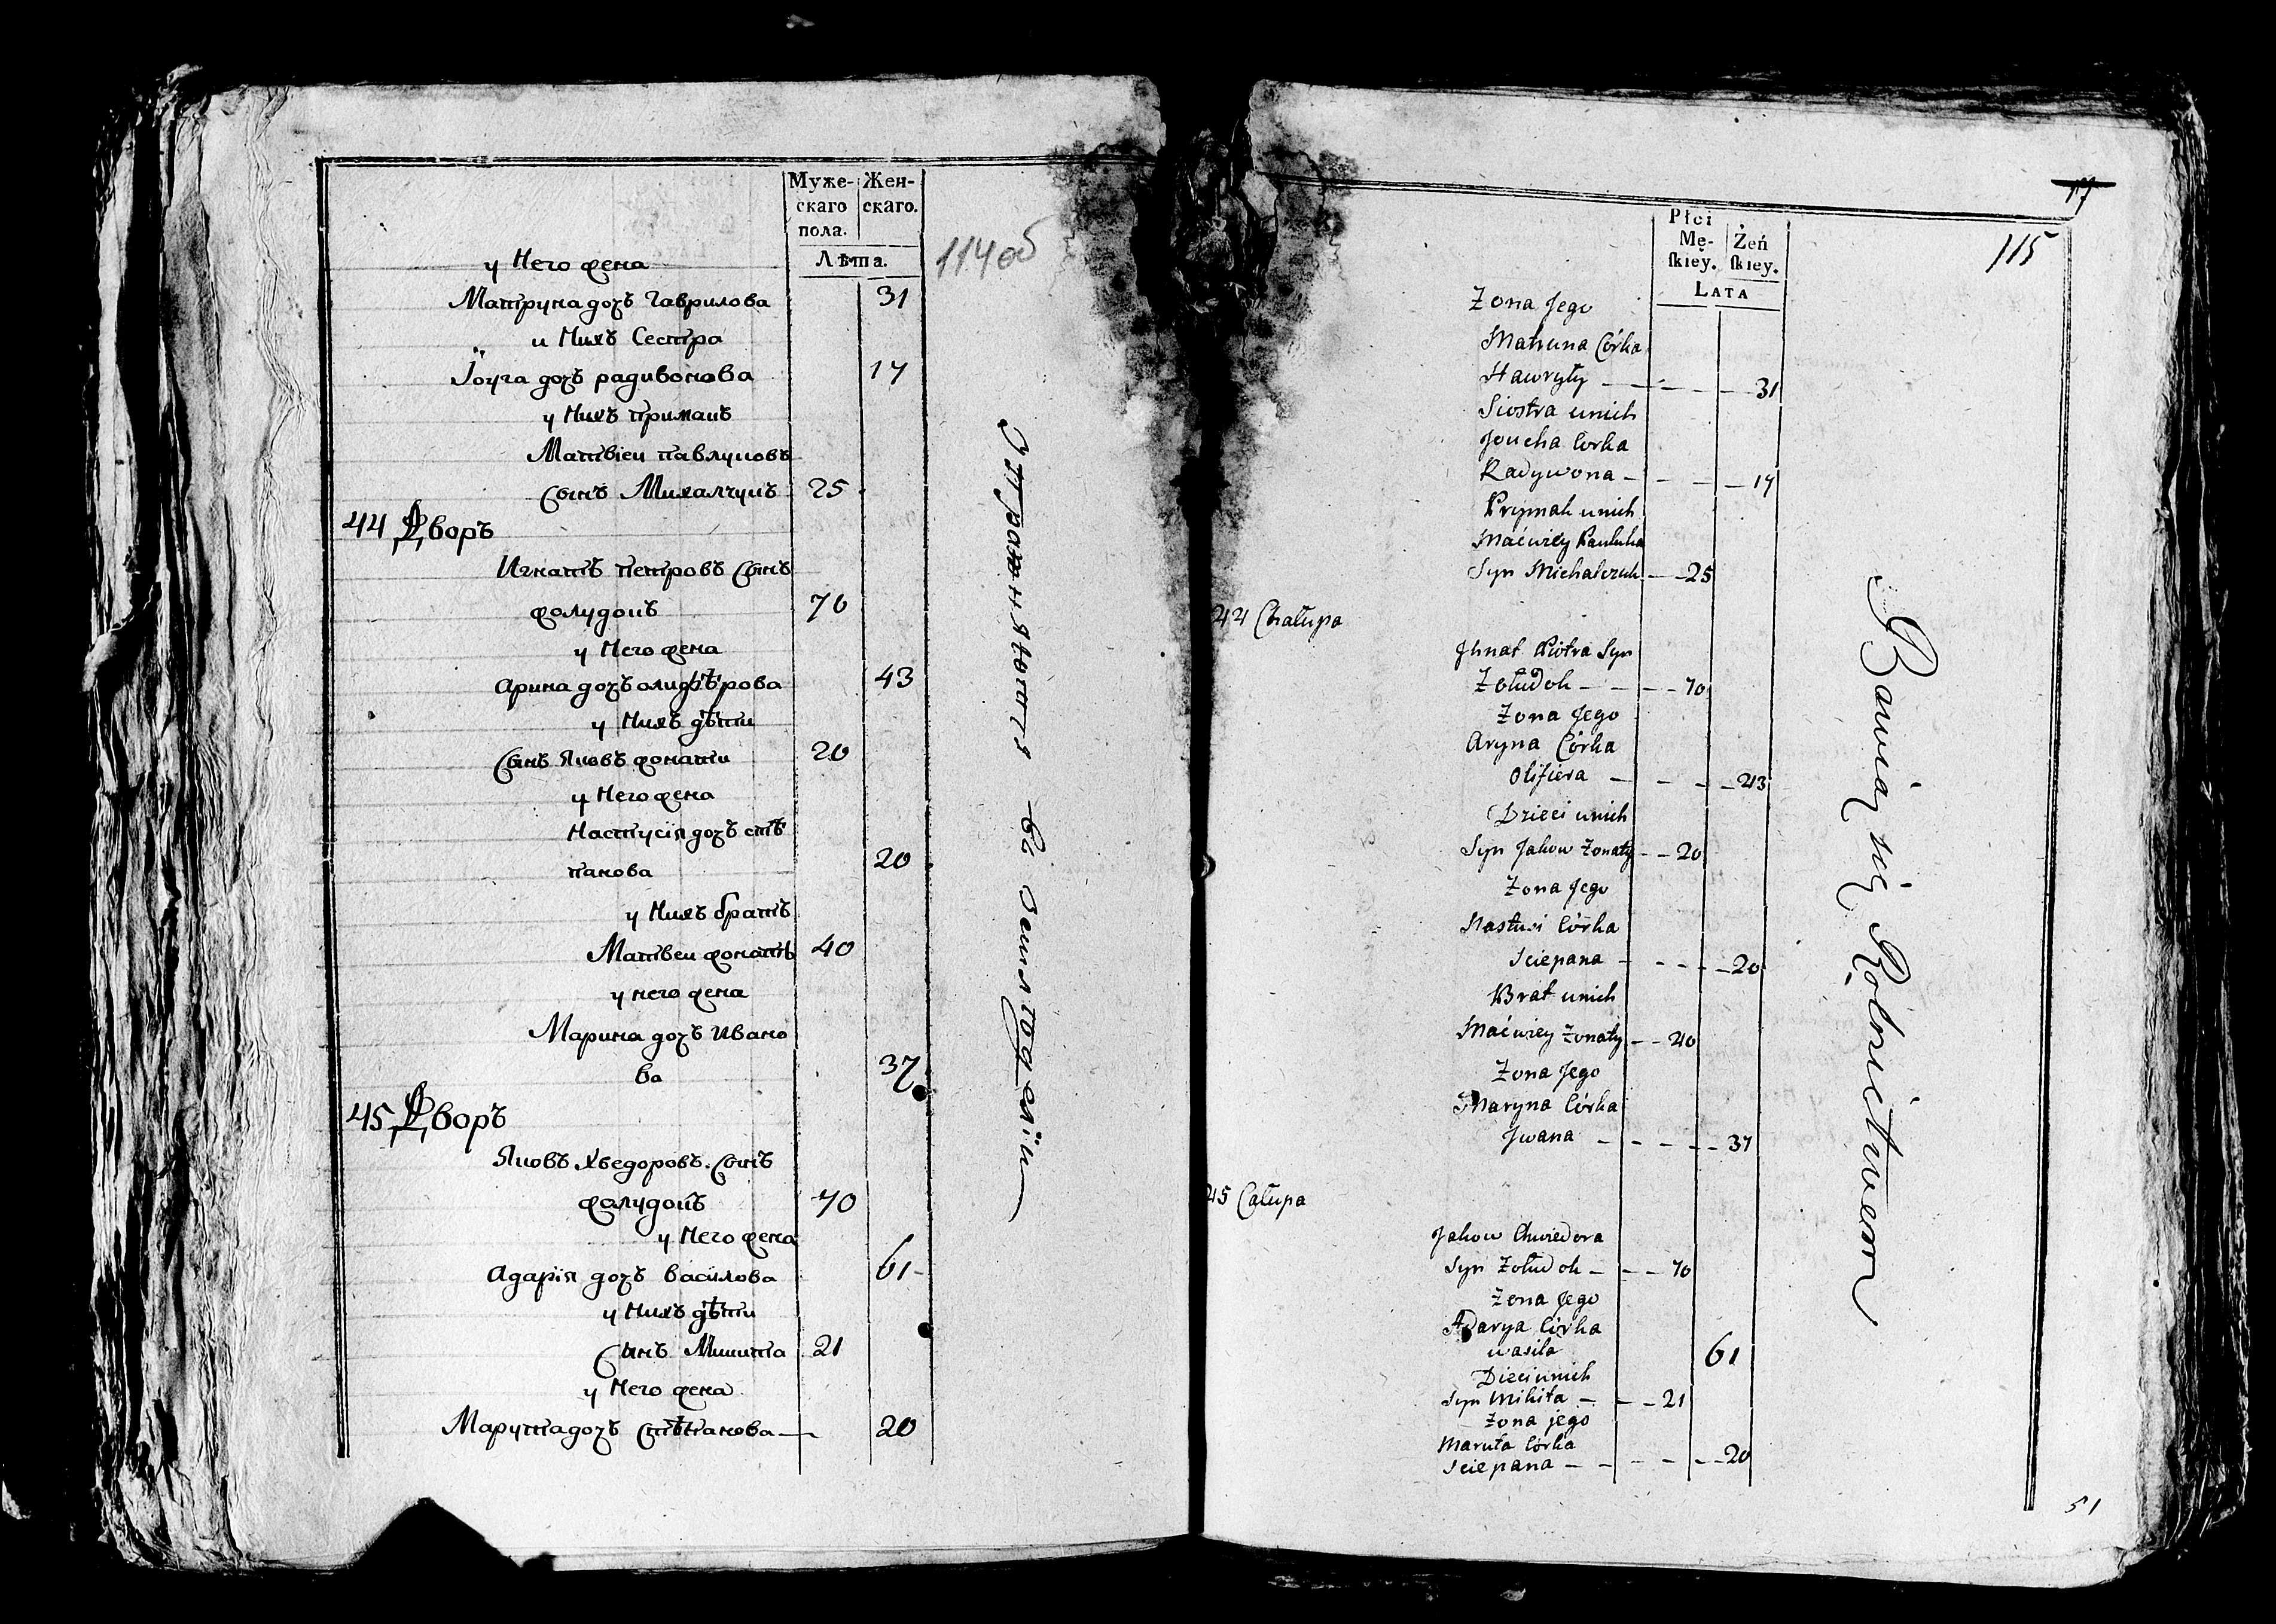 Муже-
скаго
пола.
Жен-
скаго.
Лѣта.
114 об
у Него жена
Матруна дочъ Гаврилова 31
и Нихъ Сестра
Іоуга дочъ радивонова 17
у Нихъ примакъ
Матвіеи павлуковъ
Сынъ Михалчукъ 25
44 Дворъ
Игнатъ петровъ Сынъ
жолудокъ 70
у Него жена
Арина дочъ олифѣрова 43
у Нихъ дѣти
Сынъ Яковъ жонати 20
у Него жена
Настусія дочъ стѣ
панова 20
у Нихъ братъ
Матвеи жонатъ 40
у него жена
Марина дочъ Ивано
ва 37
45 Дворъ
Яковъ Хведоровъ Сынъ
жолудокъ 70
у Него жена
Адарія дочъ василова 61
у Нихъ дѣти
Сынъ Микита 21
у Него жена
Марута дочъ Стѣпанова 20
Упражняются въ Земляподѣліи
17
115
Płci
Mę-
ſkiey.
Żeń
ſkiey.
LATA
Żona Jego
Matruna Córka
Hawryły 31
Siostra unich
Joucha Corka
Radywona 17
Prymak unich
Maćwiey Pauluka
Syn Michalczuk 25
44 Chałupa
Jhnat Piotra Syn
Żołudok 70
Żona Jego
Aryna Córka
Olifiera 43
Dzieci unich
Syn Jakow Żonaty 20
Żona Jego
Nastusi Córka
Sciepana 20
Brat unich
Maćwiey Żonaty 40
Żona Jego
Maryna Córka
Jwana 37
45 Całupa
Jakow Chwiedora
Syn Żołudok 70
Żona Jego
Adarya Córka
wasila 61
Dieci unich
Syn Mikita 21
Żona jego
Maruta Córka
Sciepana 20
Bawią się Rolnictwem
51